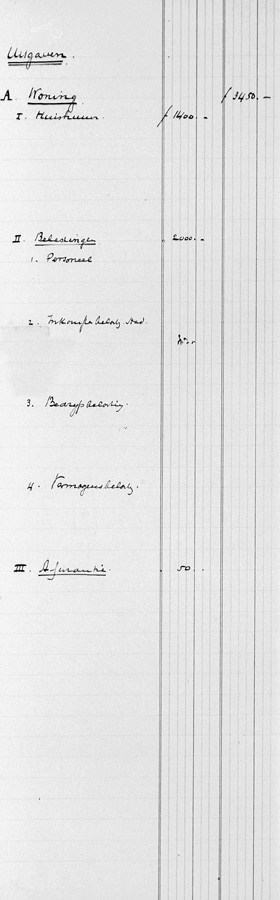 Uitgaven.
A. Woning. f 3450.-
I. Huishuur. f 1400.-
II. Belastingen 2000.-
1. Personeel
2. Inkomstenbelasty Stad.
3. Bedryfsbelasty.
4. Vermogensbelasty.
III. Assurantie. 50.